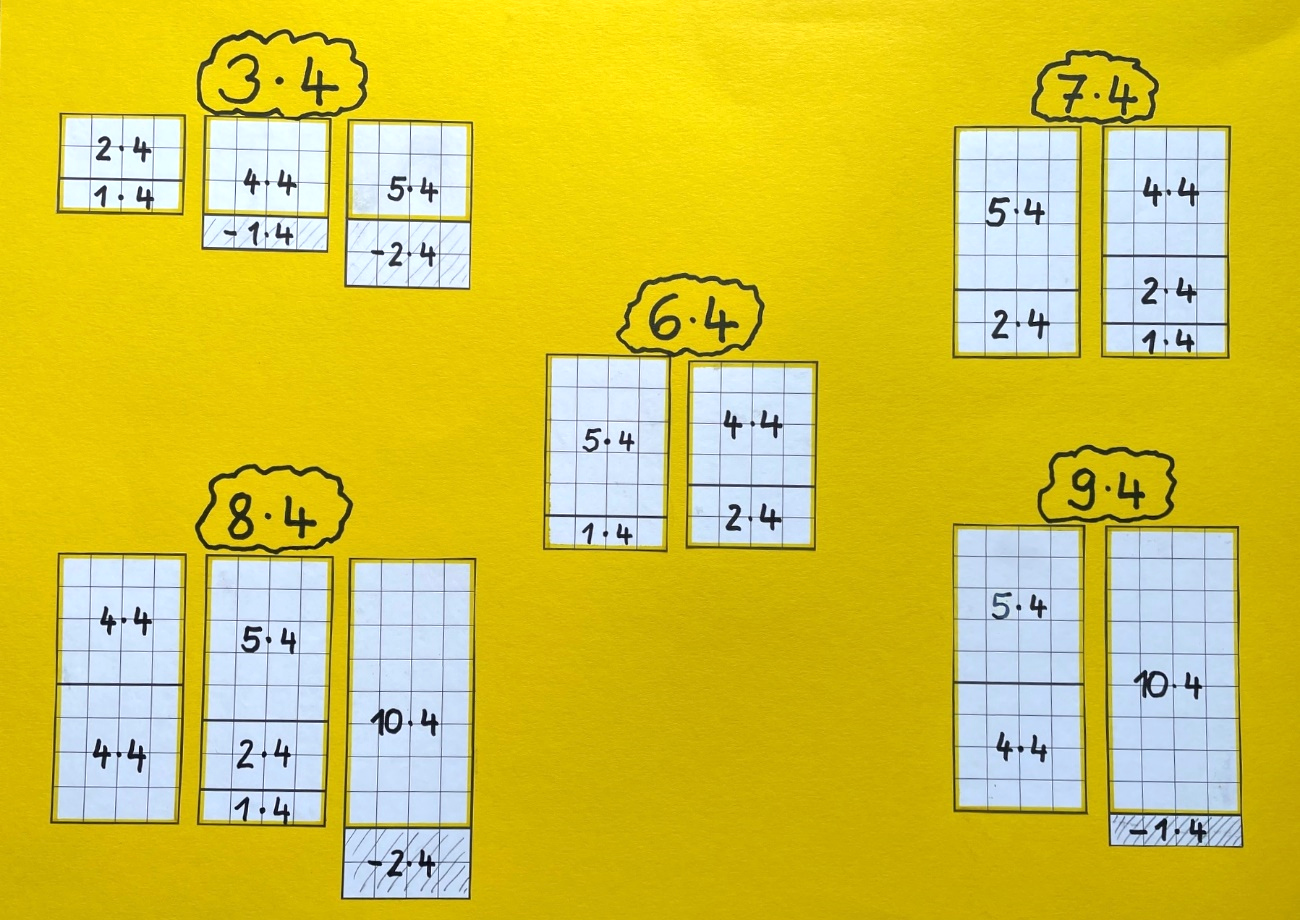 3·4
2·4
1·4
4·4
-1·4
5·4
-2·4
7·4
5·4
2·4
4·4
2·4
1·4
6·4
5·4
1·4
4·4
2·4
8·4
4·4
4·4
5·4
2·4
1·4
10·4
-2·4
9·4
5·4
4·4
10·4
-1·4